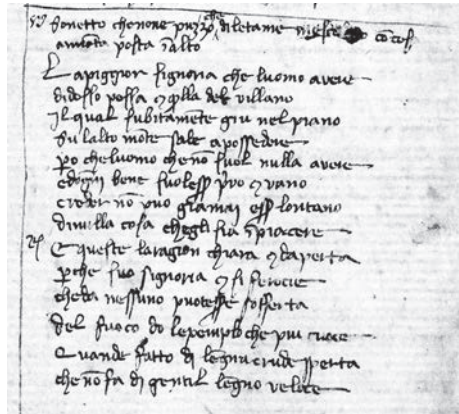 Sonetto chenone piu che diletame co cosi
amōta posta ī alto
Lapiggior signoria che luomo avere
didesso possa e q̄lla del villano
Il qual subitamēte giu nel piano
Su lalto mōte sale apossedere
p̄o cheluomo che nō suol nulla avere
edogni bene suoless p̄vo e vano
creder nō puo giamai ess lontano
dinulla cosa chegli sia īpiacere
E queste laragion chiara e daperta
p̄che suo signoria e si feroce
cheda nessuno puotesse sofferta
del fuoco do lexemplo che piu cuoce
Quande fatto di legnu crude sperta
che nō fa di gentil legno veloce